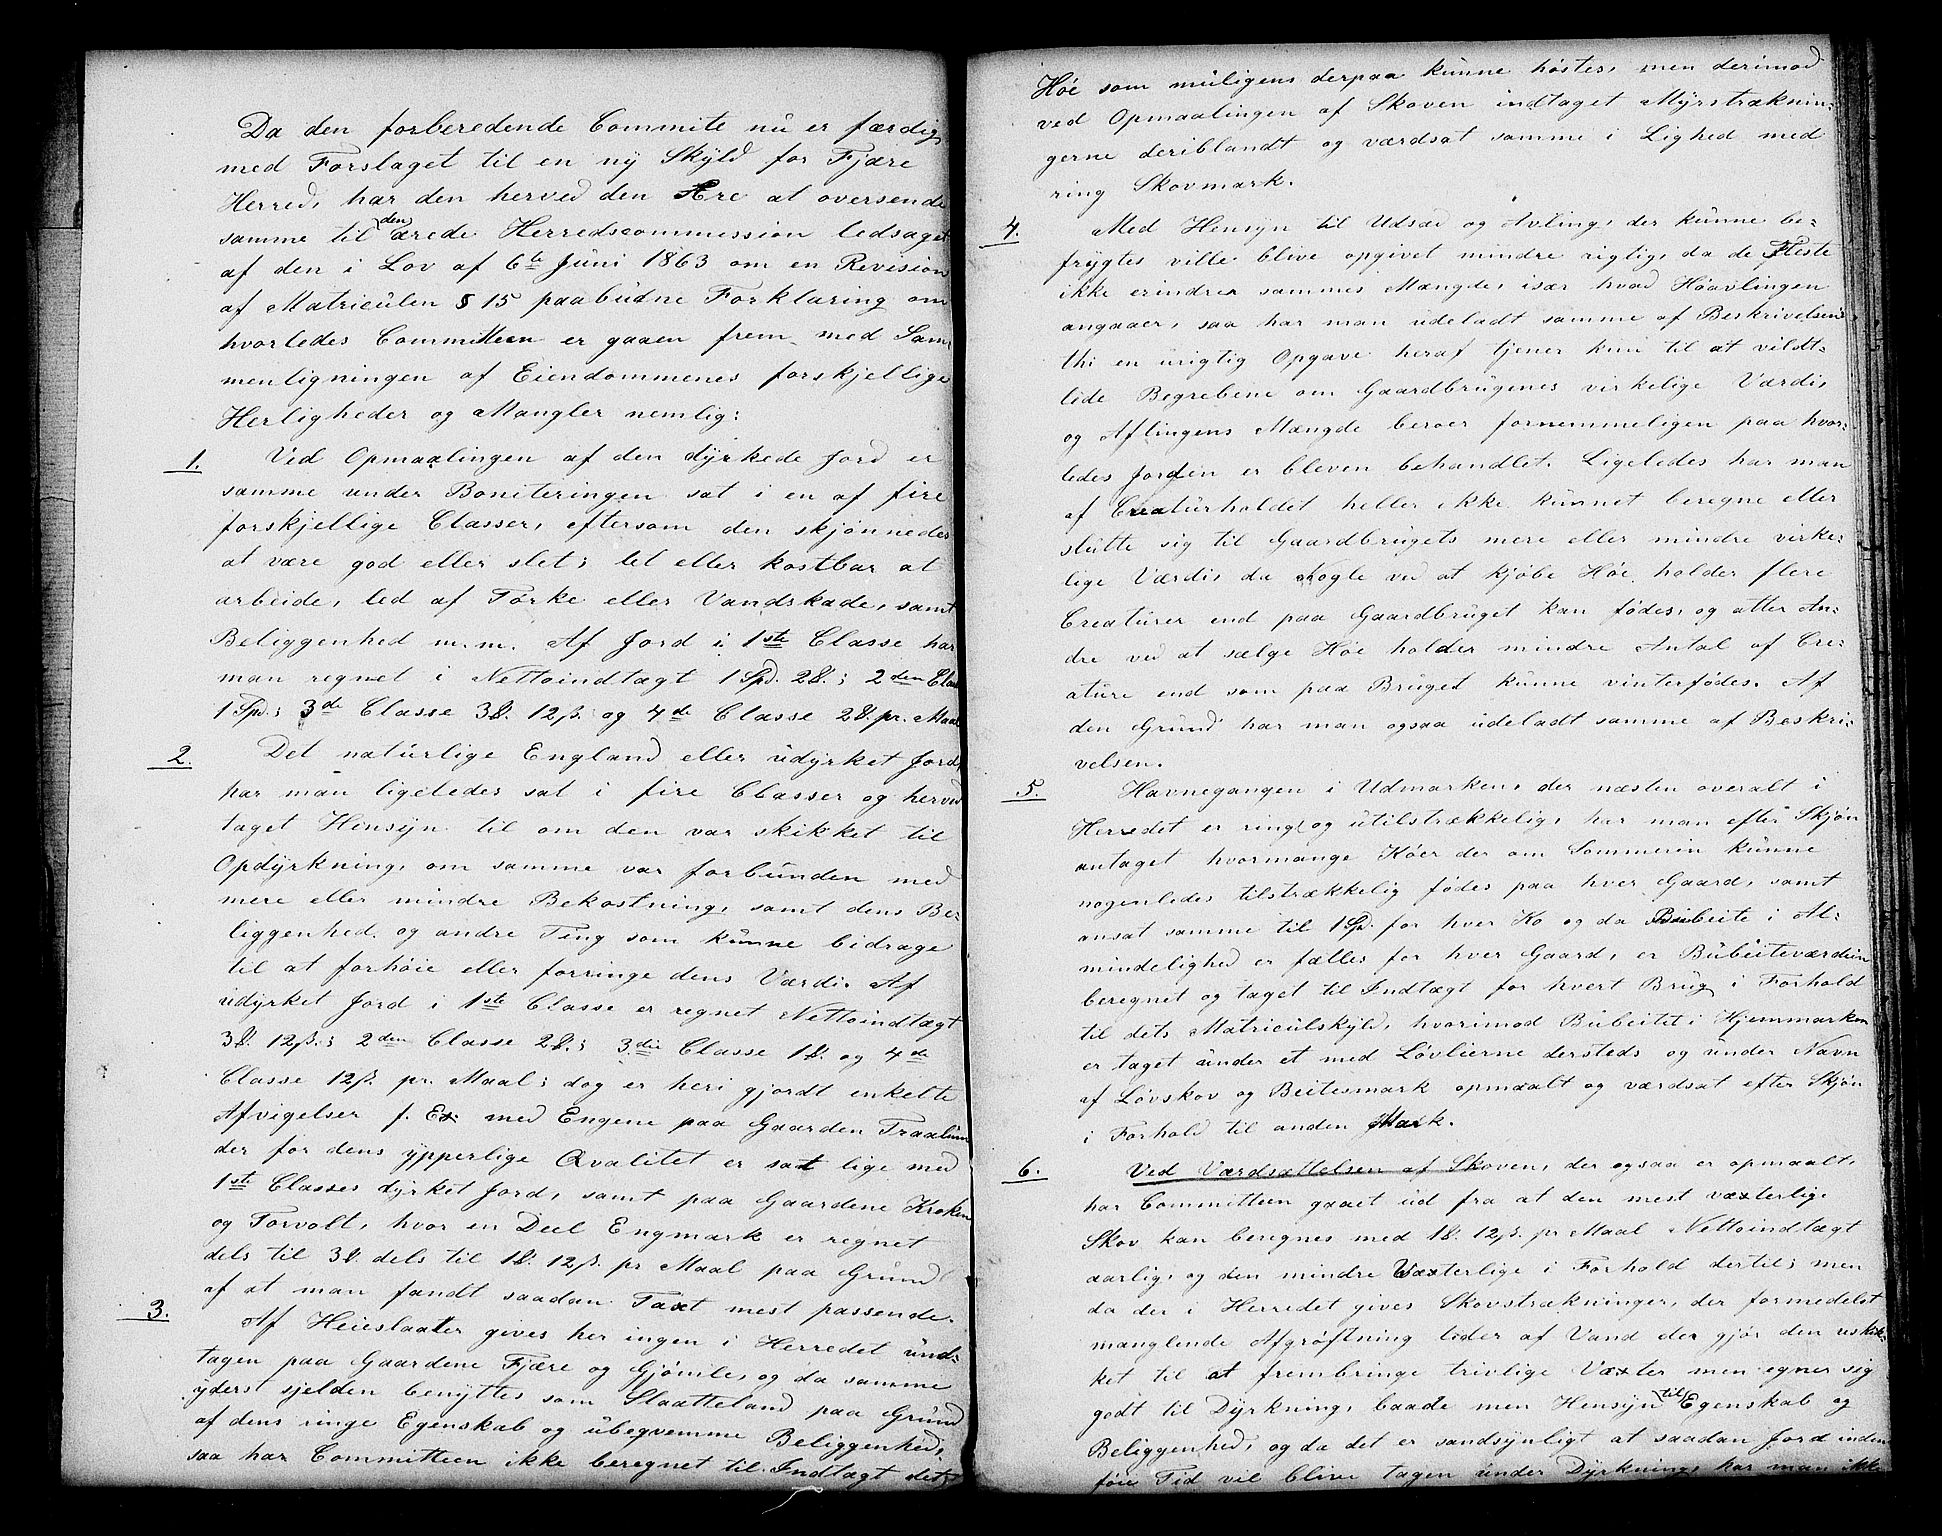 Da den forberedende Commite nu er færdig
med Forslaget til en ny Skyld for Fjære
Herred, har den herved den Ære at oversende
samme til den ærede Herredscommission ledsaget
af den i Lov af 6te Juni 1863 om en Revision
af Matriculen § 15 paabudne Forklaring om
hvorledes Committeen er gaaen frem med Sam-
menligningen af Eiendommenes forskjellige
Herligheder og Mangler nemlig:
1. Ved Opmaalingen af den dyrkede Jord er
samme under Boniteringen sat i en af fire
forskjellige Classer, eftersom den skjønnedes
at være god eller slet; let eller kostbar at
arbeide, led af Tørke eller Vandskade, samt
Beliggenhed m.m. Af Jord i 1ste Classe har
man regnet i Nettoindtægt 1 Spd. 2 ß.; 2den Clas
1 Spd.; 3de Classe 3 ß. 12 ß. og 4de Classe 2 ß. pr. Maal
2. Det naturlige England eller udyrket Jord,
har man ligeledes sat i fire Classer og herved
taget Hensyn til om den var skikket til
Opdyrkning, om samme var forbunden med
mere eller mindre Bekostning, samt dens Be-
liggenhed og andre Ting som kunne bidrage
til at forhøie eller forringe dens Værdi. Af
udyrket Jord i 1ste Classe er regnet Nettoindtægt
3 ß. 12 ß.; 2den Classe 2 ß.; 3die Classe 1 ß. og 4de
Classe 12 ß. pr. Maal; dog er heri gjordt enkelte
Afvigelser f. Ex. med Engene paa Gaarden Traalum
der for dens ypperlige Qvalitet er sat lige med
1ste Classes dyrket Jord, samt paa Gaardene Kroken
og Torvolt, hvor en Deel Engmark er regnet
dels til 3 ß. dels til 1 ß. 12 ß. pr Maal paa Grund
af at man fandt saadan Taxt mest passende.
3. Af Heieslaatter gives her ingen i Herredet und-
tagen paa Gaardene Fjære og Gjømle, og da samme
yderst sjelden benyttes som Slaatteland paa Grund
af dens ringe Egenskab og ubeqvemme Beliggenhed,
saa har Committeen ikke beregnet til Indtægt det
Høe som muligens derpaa kunne høstes, men derimod
ved Opmaalingen af Skoven indtaget Myrstræknin-
gerne deriblandt og værdsat samme i Lighed med
ring Skovmark.
4. Med Hensyn til Udsæd og Avling, der kunne be-
frygtes ville blive opgivet mindre rigtig, da de Fleste
ikke erindrer sammes Mængde, især hvad Høavlingen
angaaer, saa har man udeladt samme af Beskrivelsen,
thi en urigtig Opgave heraf tjener kun til at vildt-
lede Begrebene om Gaardbrugenes virkelige Værdi,
og Aflingens Mængde beroer fornemmeligen paa hvor-
ledes Jorden er bleven behandlet. Ligeledes har man
af Creaturholdet heller ikke kunnet beregne eller
slutte sig til Gaardbrugets mere eller mindre virke-
lige Værdi, da Nogle ved at kjøbe Høe, holder flere
Creaturer end paa Gaardbruget kan fødes, og atter An-
dre ved at sælge Høe holder mindre Antal af Cre-
ature end som paa Bruget kunne vinterfødes. Af
den Grund har man ogsaa udeladt samme af Beskri-
velsen.
5. Havnegangen i Udmarken, der næsten overalt i
Herredet er ring og utilstrækkelig, har man efter Skjøn
antaget hvormange Køer der om Sommeren kunne
nogenledes tilstrækkelig fødes paa hver Gaard, samt
ansat samme til 1 Spd. for hver Ko og da Bubeite i Al-
mindelighed er fælles for hver Gaard, er Bubeiteværdien
beregnet og taget til Indtægt for hvert Brug i Forhold
til dets Matriculskyld, hvorimod Bubeitet i Hjemmarken
er taget under et med Løvlierne dersteds og under Navn
af Løvskov og Beitesmark opmaalt og værdsat efter Skjøn
i Forhold til anden Mark.
6. Ved Værdsættelsen af Skoven, der ogsaa er opmaalt,
har Committeen gaaet ud fra at den mest væxterlige
Skov kan beregnes med 1 ß. 12 ß. pr Maal Nettoindtægt
aarlig, og den mindre Væxterlige i Forhold dertil; men
da der i Herredet gives Skovstrækninger, der formedelst
manglende Afgrøftning lider af Vand der gjør den uskik-
ket til at frembringe trivlige Væxter men egner sig
godt til Dyrkning, baade men Hensyn til Egenskab og
Beliggenhed, og da det er sandsynligt at saadan Jord inden
føie Tid vil blive tagen under Dyrkning, har man ikke